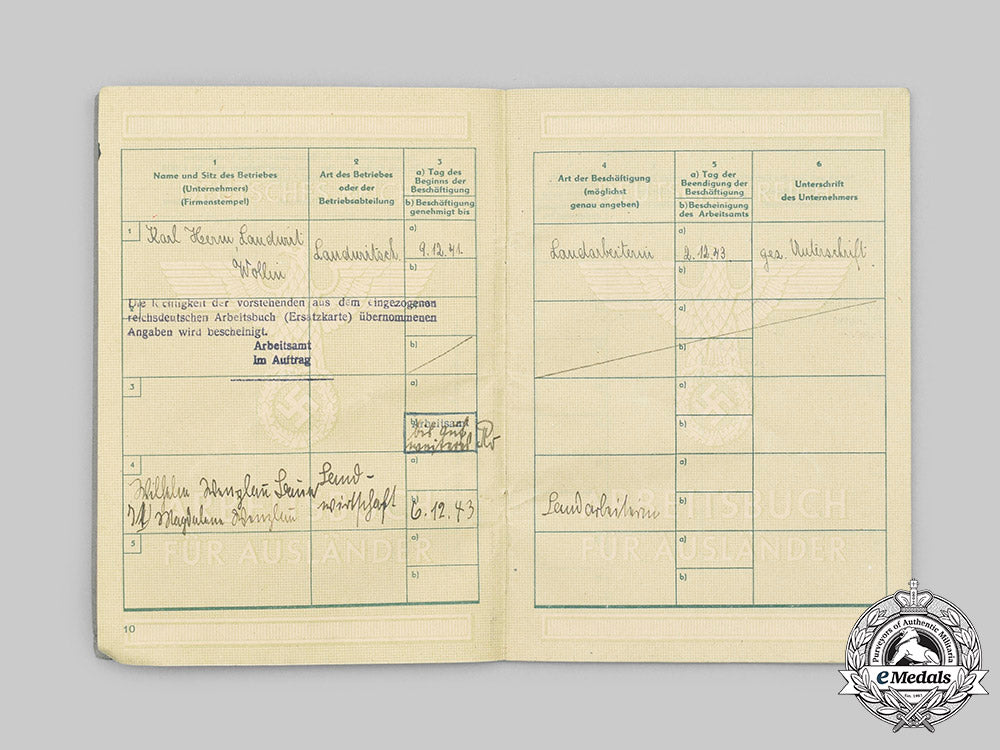 1
Name und Sitz des Betriebes
(Unternehmers)
(Firmenstempel)
2
Art des Betriebes
oder der
Betriebsabteilung
3
a) Tag des
Beginns der
Beschäftigung
b) Beschäftigung
genehmigt bis
1
Karl Herm, Landwirt
Wollin
Landwirtsch.
a)
9.12.41.
b)
Die Richtigkeit der vorstehenden aus dem eingezogenen
reichsdeutschen Arbeitsbuch (Ersatzkarte) übernommenen
Angaben wird bescheinigt.
Arbeitsamt
Im Auftrag
b)
3
a)
Arbeitsamt
bis auf
weiteres
4
Wilhelm Wenzlau
Magdalene Wenzlau
Land-
wirtschaft
a)
b)
6.12.43
5
a)
b)
ARBEITSBUCH
FÜR AUSLÄNDER
10
4
Art der Beschäftigung
(möglichst
genau angeben)
5
a) Tag der
Beendigung der
Beschäftigung
b) Bescheinigung
des Arbeitsamts
6
Unterschrift
des Unternehmers
Landarbeiterin
a)
2.12.43
b)
gez. Unterschrift
a)
b)
a)
b)
Landarbeiterin
a)
b)
a)
b)
ARBEITSBUCH
FÜR AUSLÄNDER
Purveyors of Authentic Militaria
eMedals